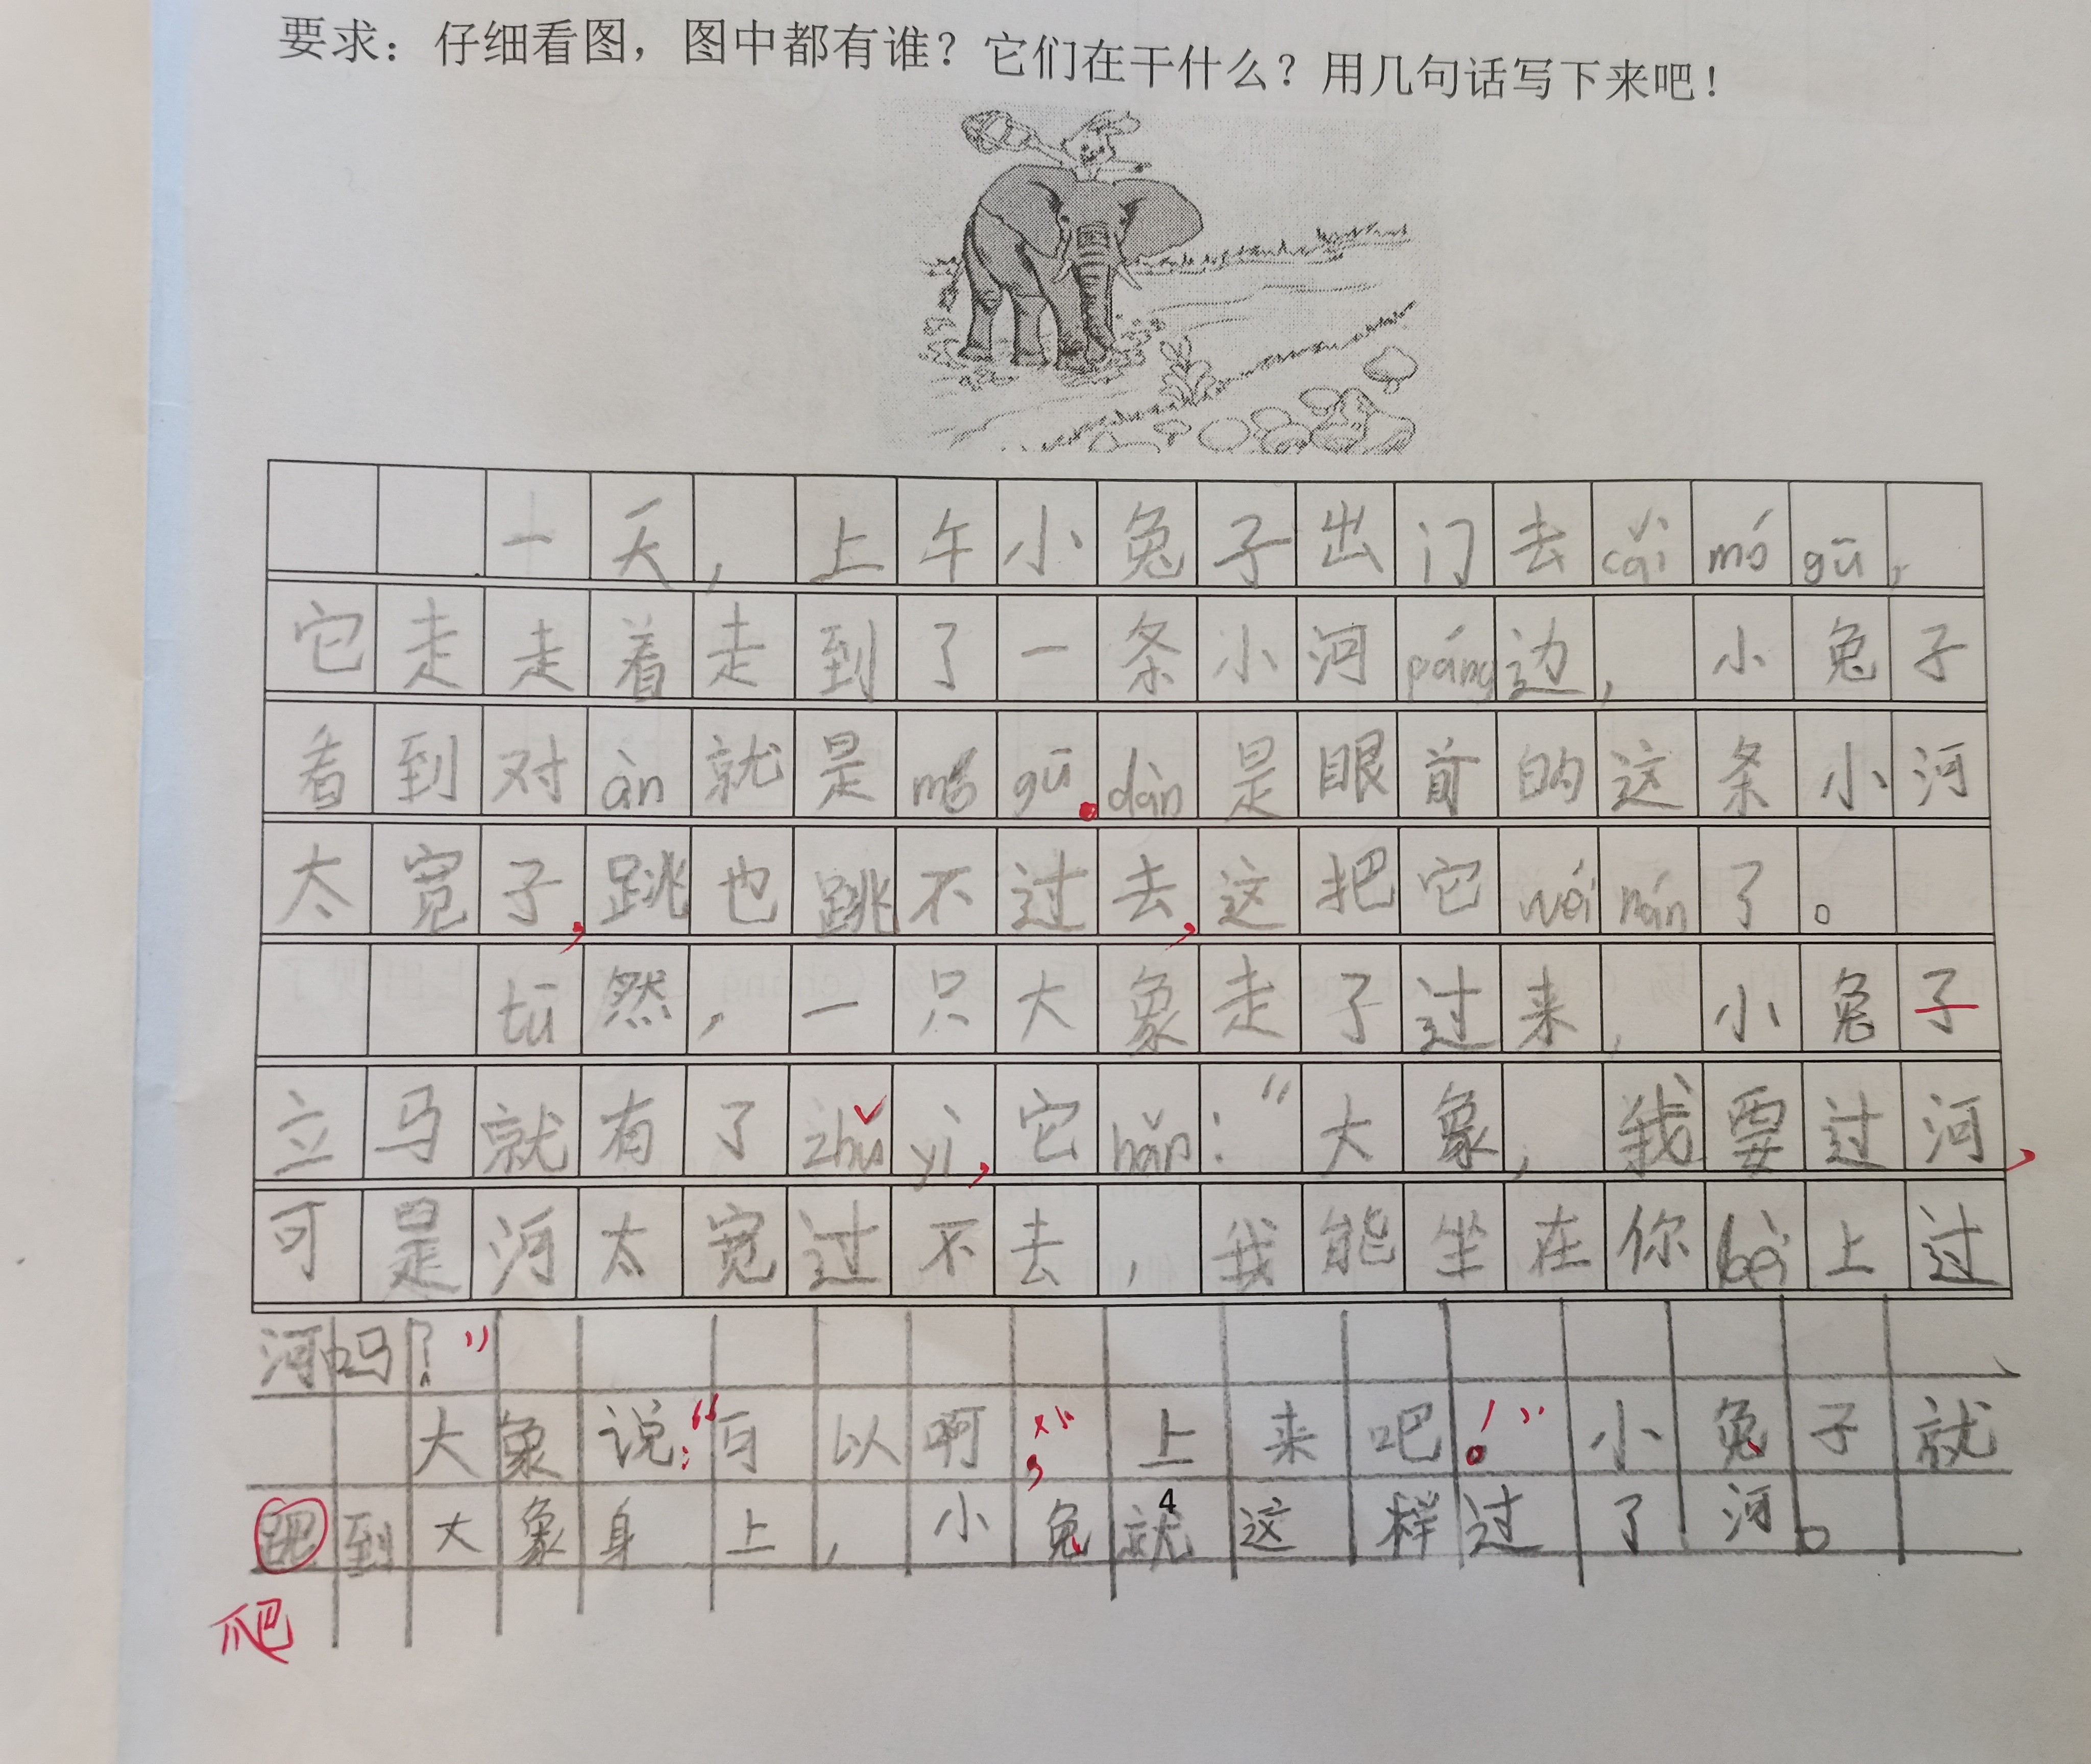 要求：仔细看图，图中都有谁？它们在干什么？用几句话写下来吧！
一天，上午小兔子出门去cǎi mó gū，
它走走着走到了一条小河páng边，小兔子
看到对àn就是mó gū。dàn是眼前的这条小河
太宽子，跳也跳不过去，这把它wéi nán了。
tū然，一只大象走了过来，小兔子
立马就有了zhǔ yì，它hǎn：“大象，我要过河，
可是河太宽过不去，我能坐在你bèi上过
河吗？”
大象说：“可以啊，上来吧！”小兔子就
跑到大象身上，小兔就这样过了河。
爬
4